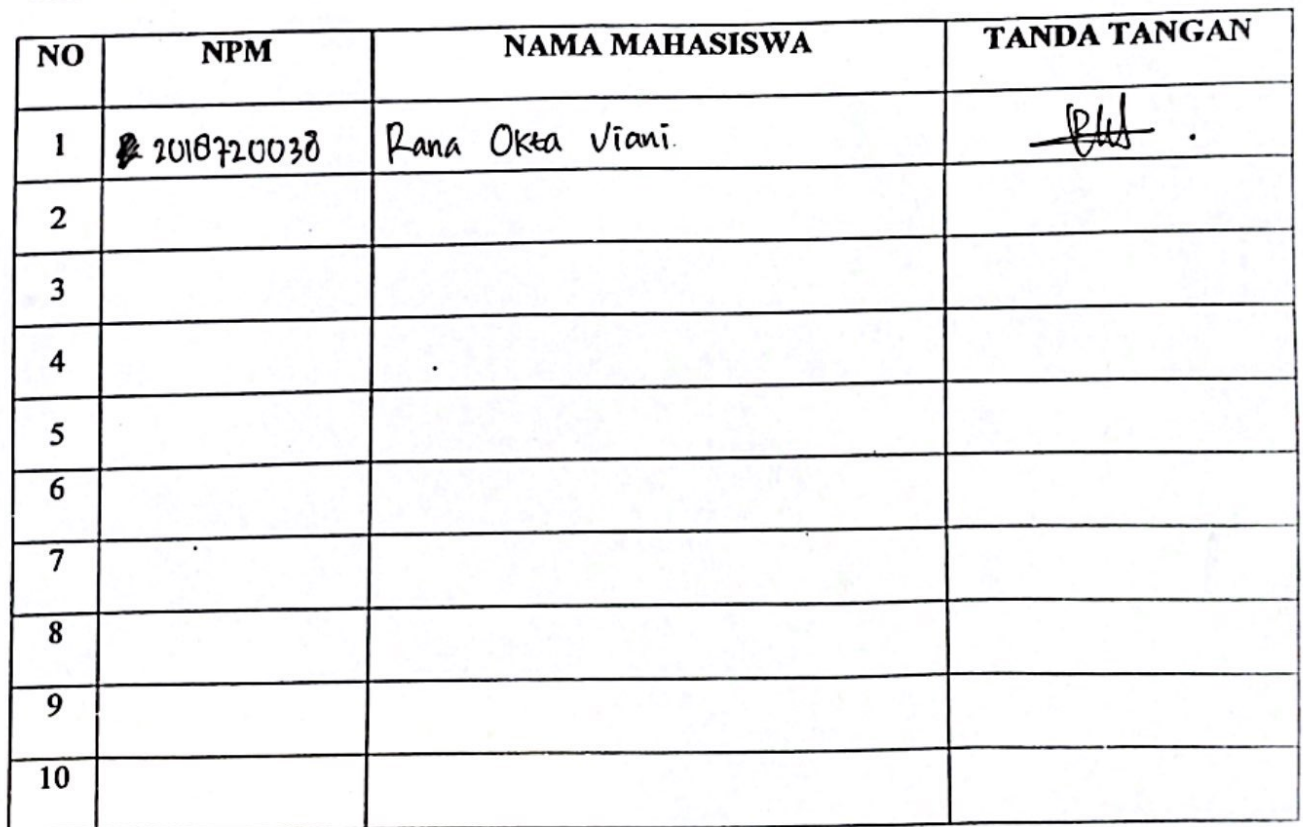 NO NPM NAMA MAHASISWA TANDA TANGAN
1 2018720038 Rana Okta Viani.
2
3
4
5
6
7
8
9
10